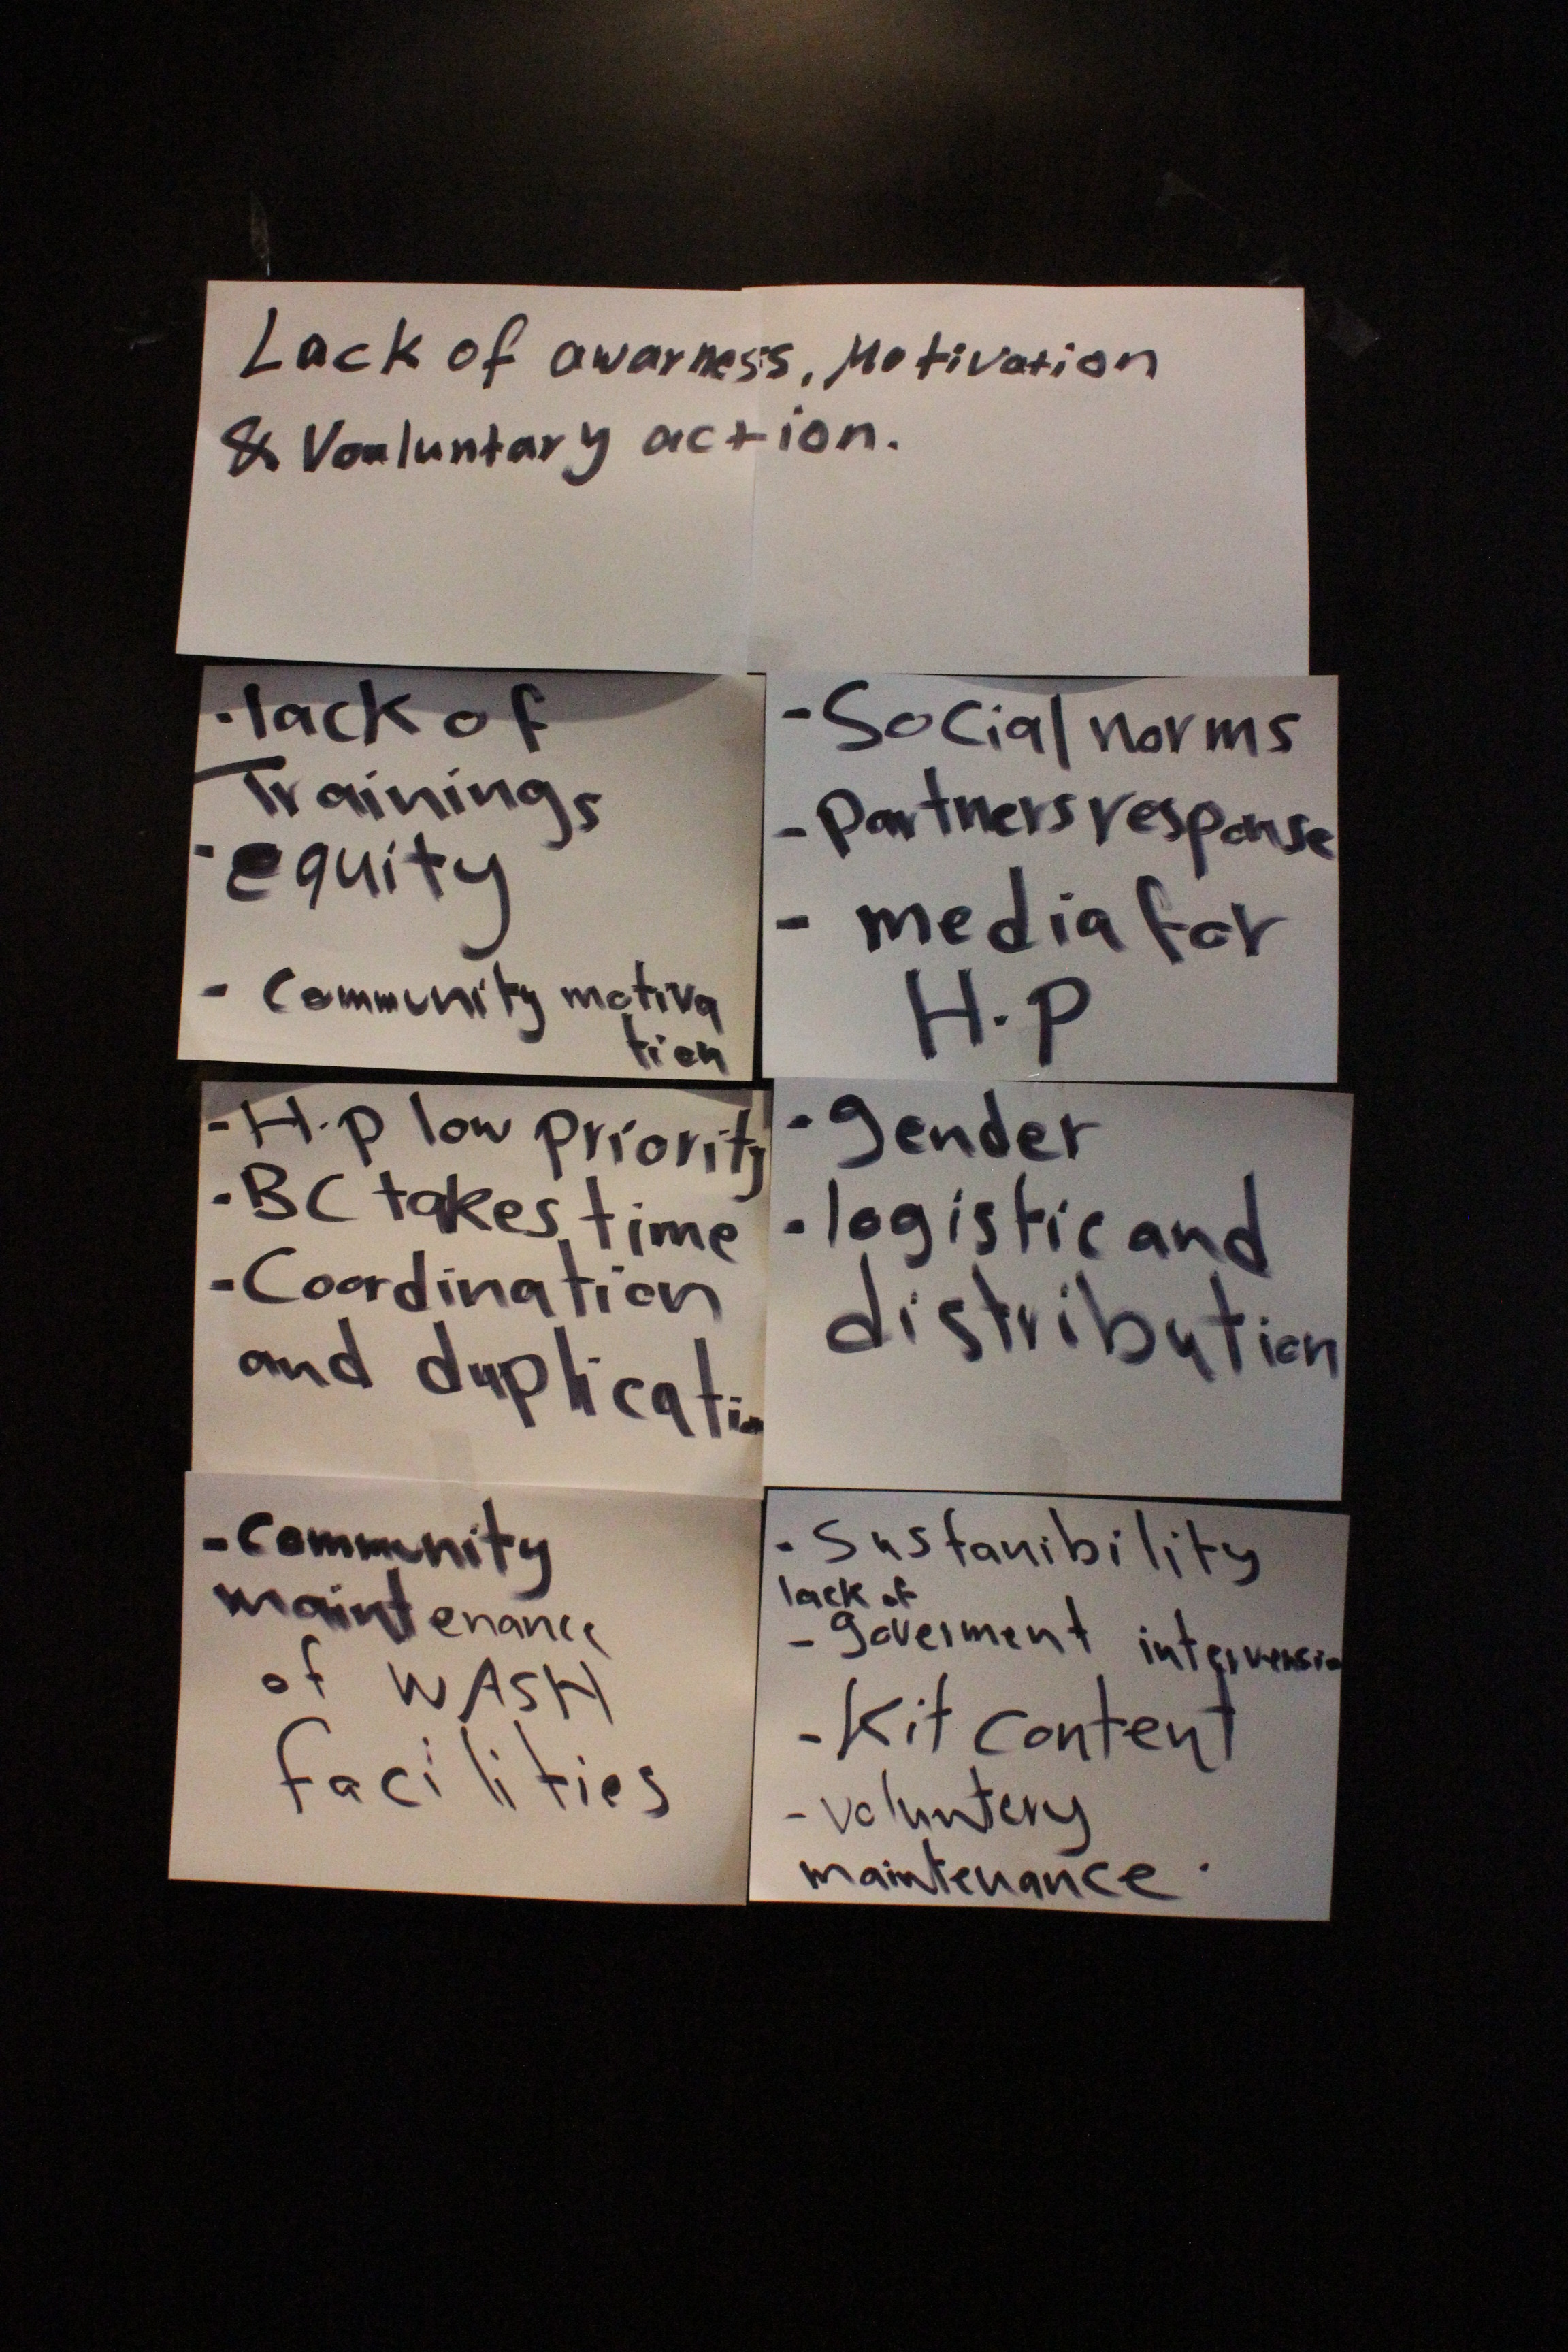 Lack of awarness, Motivation
& Vouluntary action.
- lack of
Trainings
- equity
- Community motiva
tion
- Social norms
- Partners response
- media for
H.P
- H.p low priority
- BC takes time
- Coordination
and duplicatio
- gender
- logistic and
distribution
- Community
maintenance
of WASH
facilities
- Sustanibility
lack of
- goverment intervensio
- Kit content
- voluntery
maintenance.